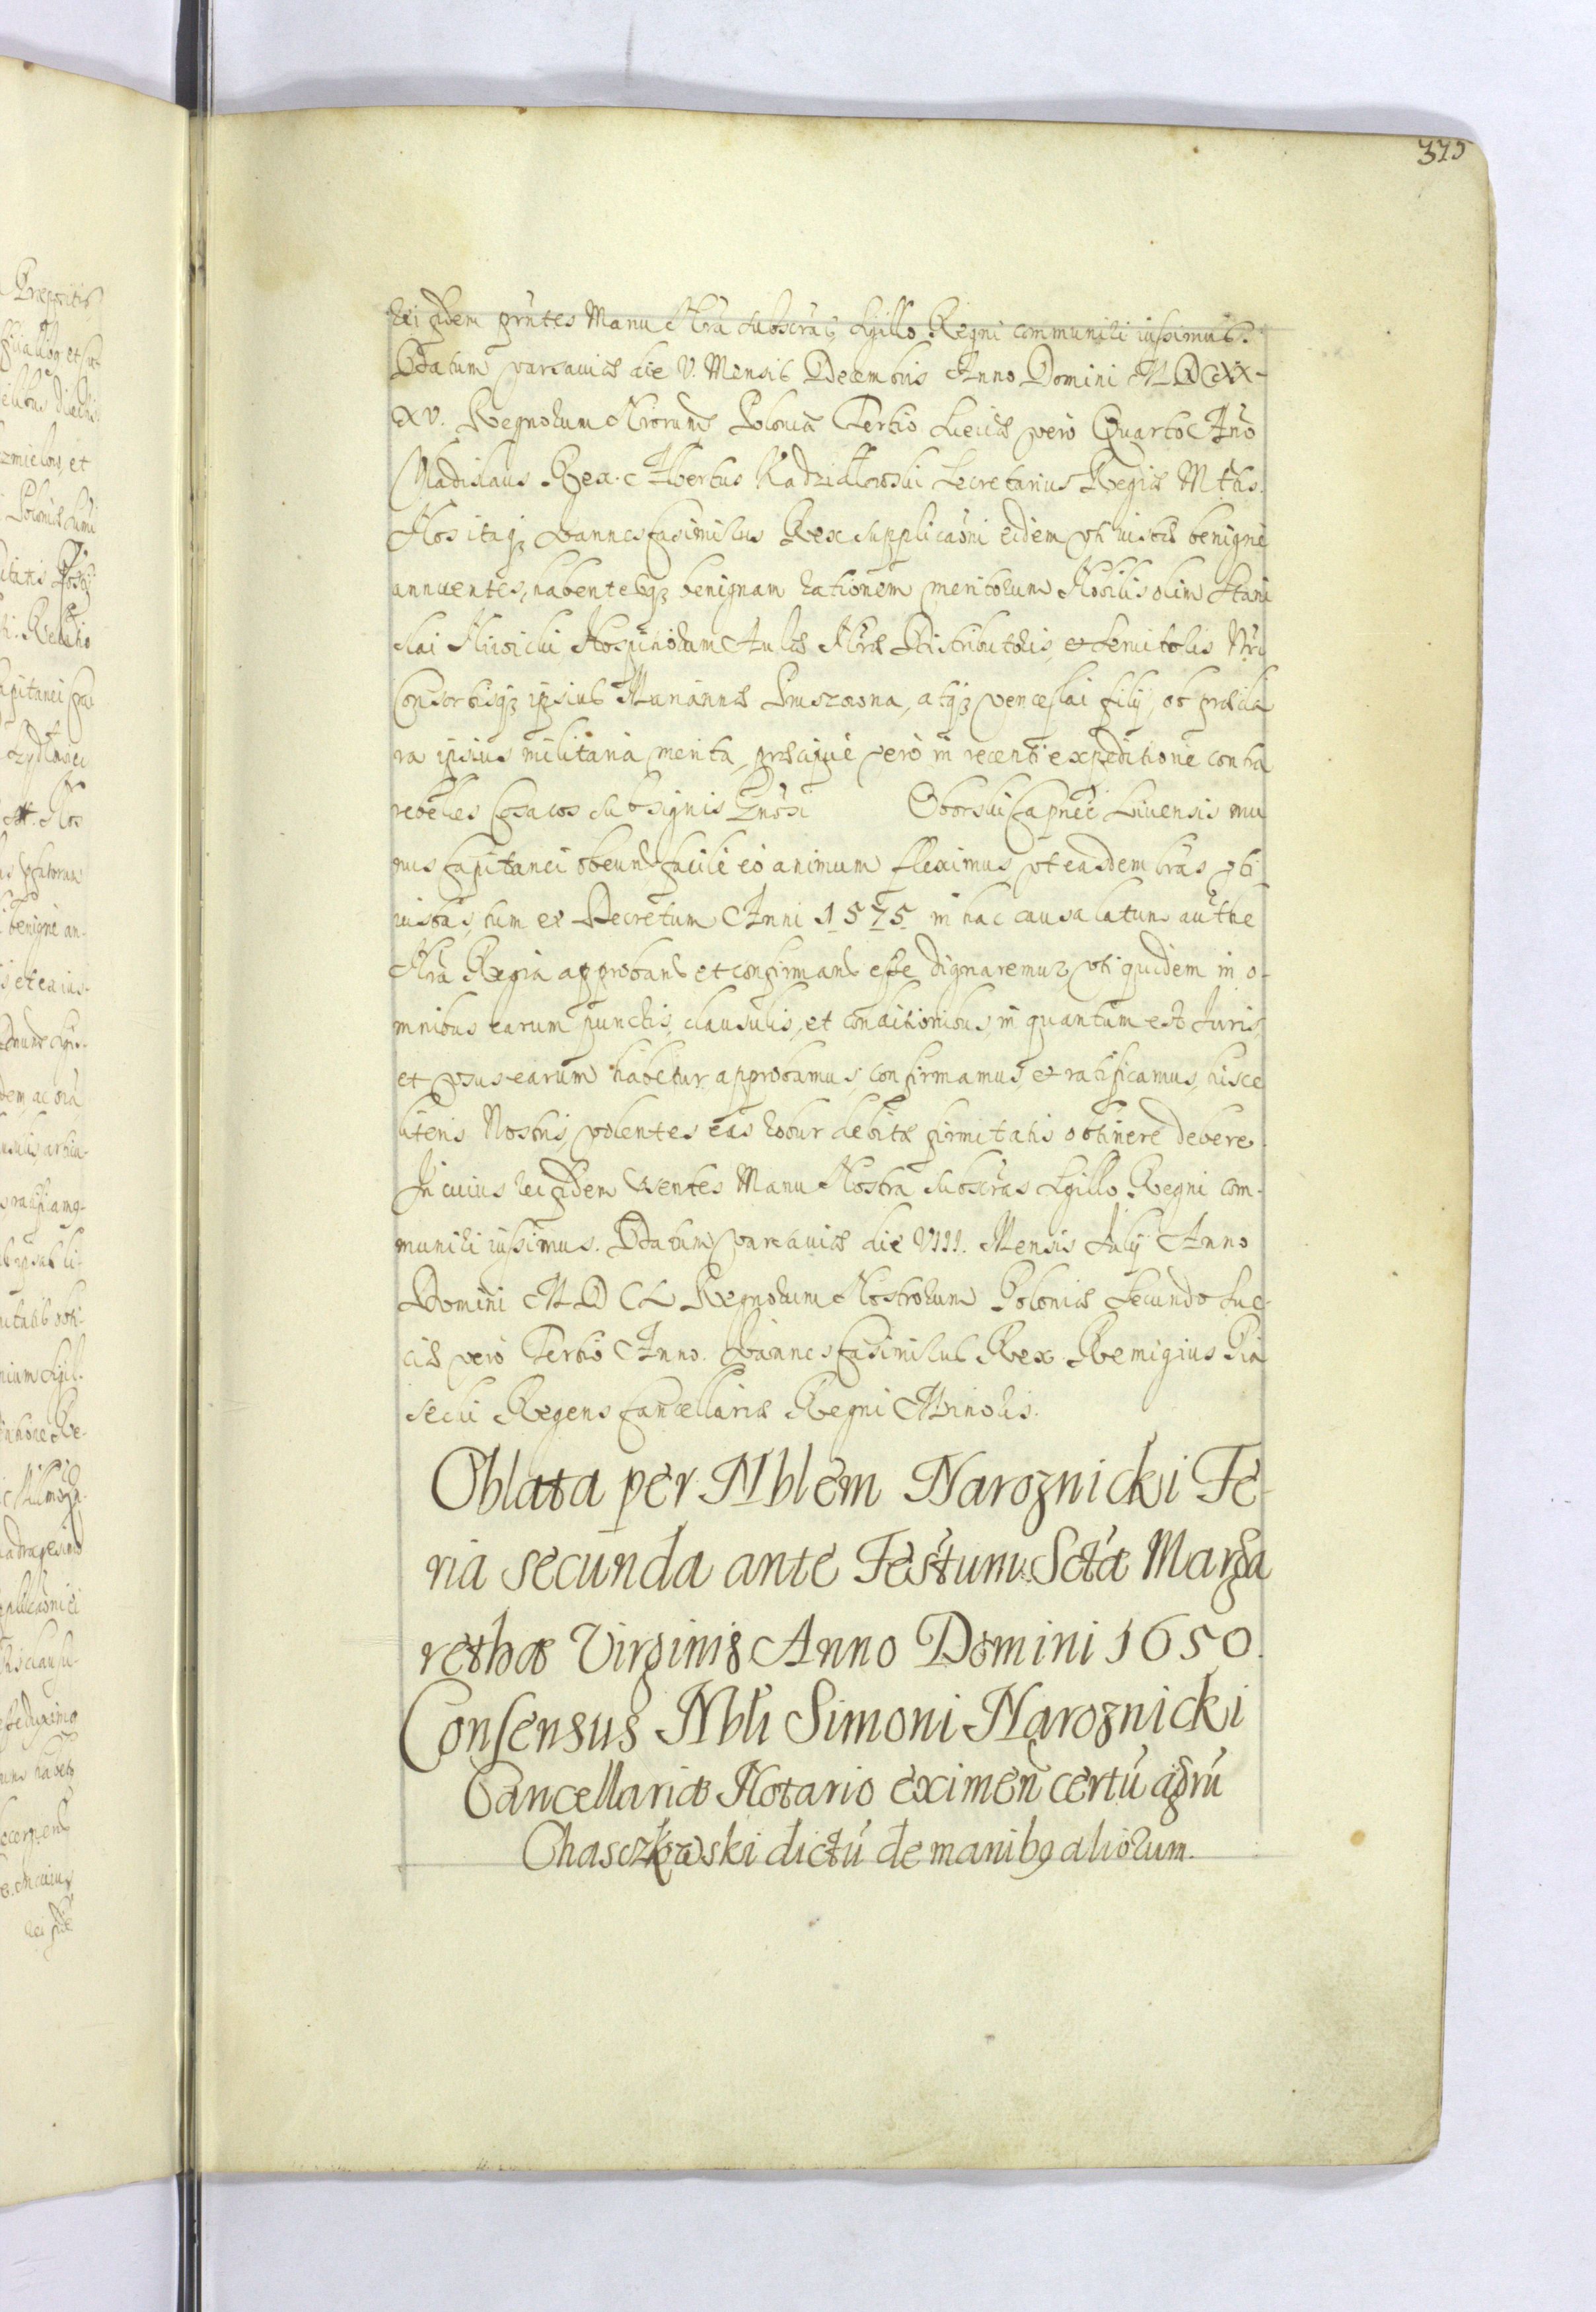 375
Rei fidem pñtes Manu Nrã subscrãs, Sgillo Regni communiri iussimus.
Datum Varsaviæ die V. Mensis Decembris Anno Domini MDCXX-
XV. Regnorum Nrorum Poloniæ Tertio Sueciæ vero Quarto Año
Vladislaus Rex. Albertus Radzidłowski Secretarius Regiæ Mttis.
Nos itaqꝫ Ioannes Casimirus Rex supplicaõni eidem uti iustæ benigne
annuentes, habentesqꝫ benignam rationem meritorum Nobilis olim Stani
slai Hospitiorum Aulæ Nræ Distributoris, et servitoris Nri
Consortisqꝫ ipsius Mariannæ Pruszowna, atqꝫ Venceslai filij, ob præcla
ra ipsius militaria merita, præcipue vero in recenti expeditione contra
rebelles Cosacos sub signis Gnosi Oborski Capnei Livensis mu
nus Capitanei obeund facile eo animum fleximus, ut easdem lras uti
iustas, tum et Decretum Anni 1575 in hac causa latum authe
Nrã Regia approband et confirmand esse dignaremur, uti quidem in o-
mnibus earum punctis, clausulis, et conditionibus, in quantum est Iuris,
et usus earum habetur approbamus, confirmamus, et ratificamus, hisce
literis Nostris, volentes eas robur debitæ firmitatis obtinere debere.
In cuius rei fidem Manu Nostra subscras Sgillo Regni com-
muniri iussimus. Datum Varsaviæ die VIII. Mensis Iulij Anno
Domini MDCL Regnorum Nostrorum Poloniæ Secundo Sue-
ciæ vero Tertio Anno. Ioannes Casimirus Rex. Remigius Pia
secki Regens Cancellariæ Regni Minoris.
Oblata per Nblem Naroznicki Fe-
ria secunda ante Festum Sctæ Marga
rethæ Virginis Anno Domini 1650.
Consensus Nbli Simoni Naroznicki
Cancellariæ Notario eximeñ certũ agrũ
Chasczkowski dictũ de manibꝯ aliorum.